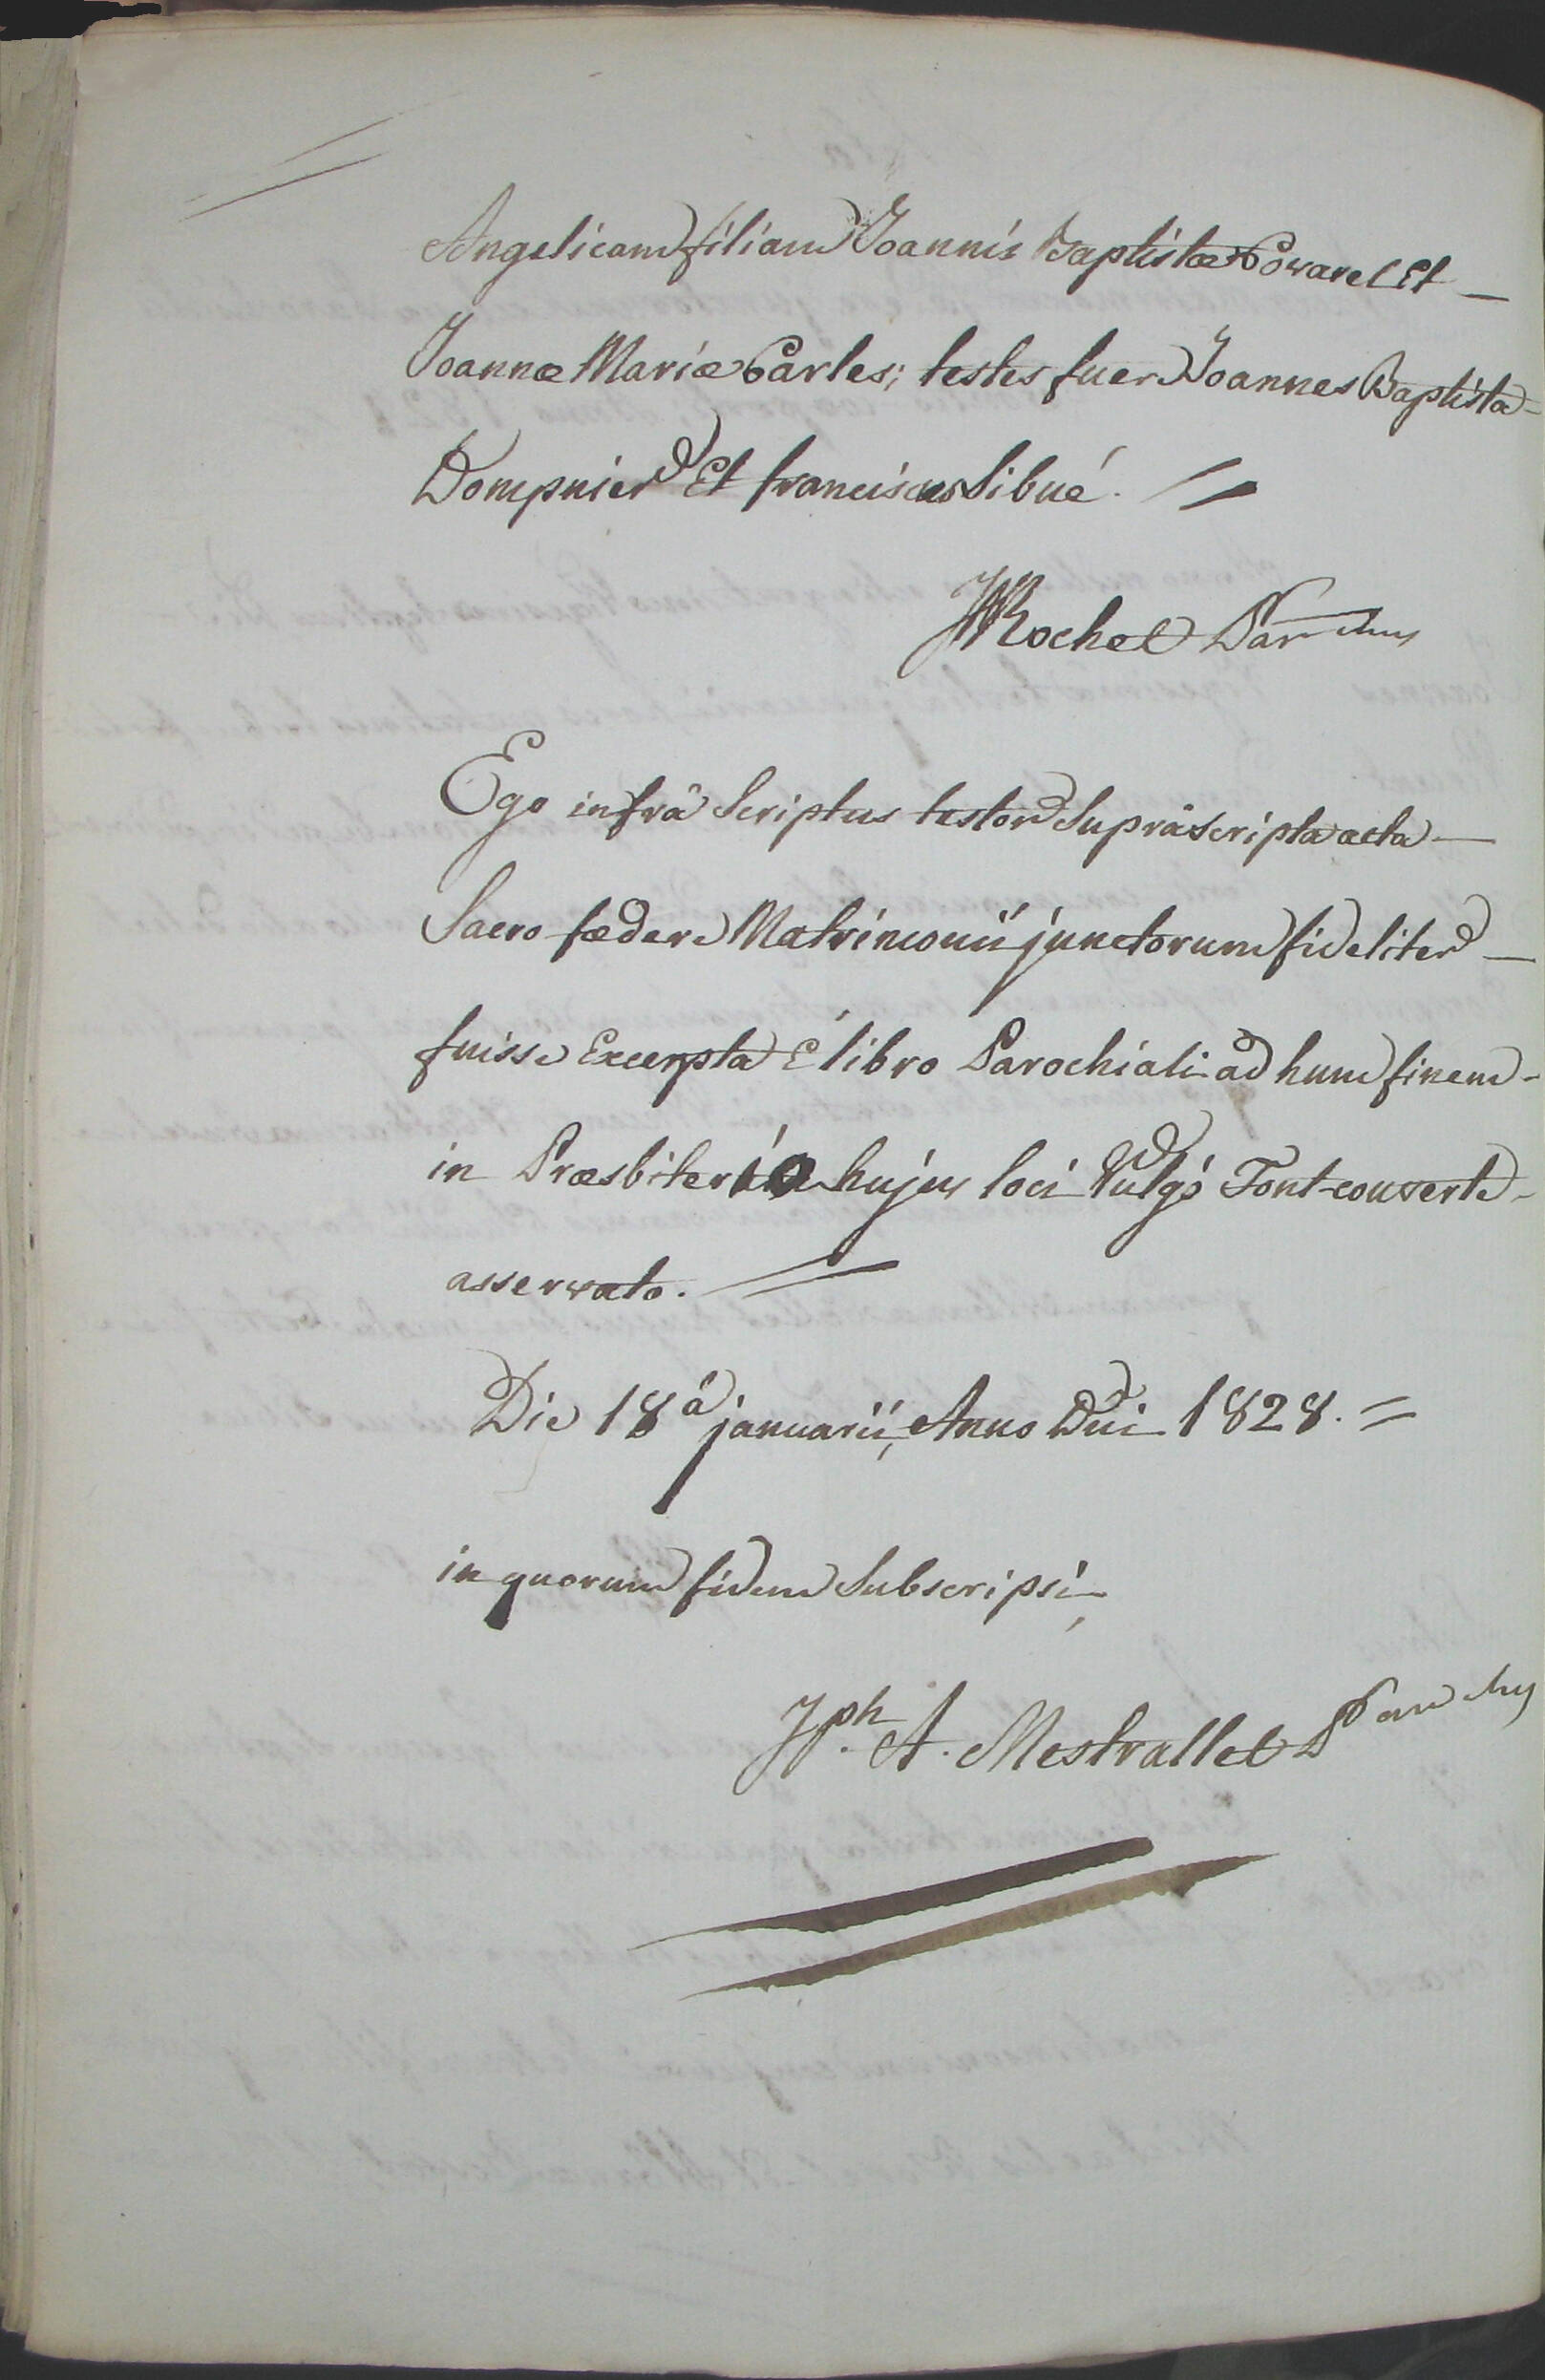 Angelicam filiam Joannis Baptistæ Covarel Et —
Joannæ Mariæ Carles; testes fuere Joannes Baptista =
Dompnier Et franciscus Sibué. =
JRochet Parochus
Ego infrà Scriptus testor Supràscripta acta —
Sacro fædere Matrimonii junctorum fideliter —
fuisse Excerpta È libro Parochiali ad hunc finem -
in Præsbiterio hujus loci Vulgò Font-couverte -
asservato. =
Die 18â januarii, Anno Dni 1828. =
in quorum fidem Subscripsi
Jph. A. Mestrallet Parochus